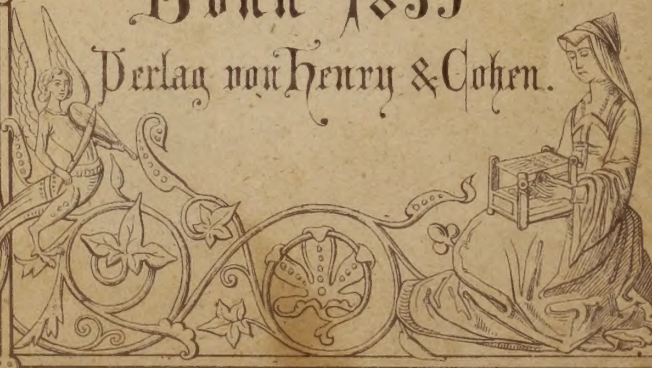 Bonn 1855
Verlag von Henry & Cohen.